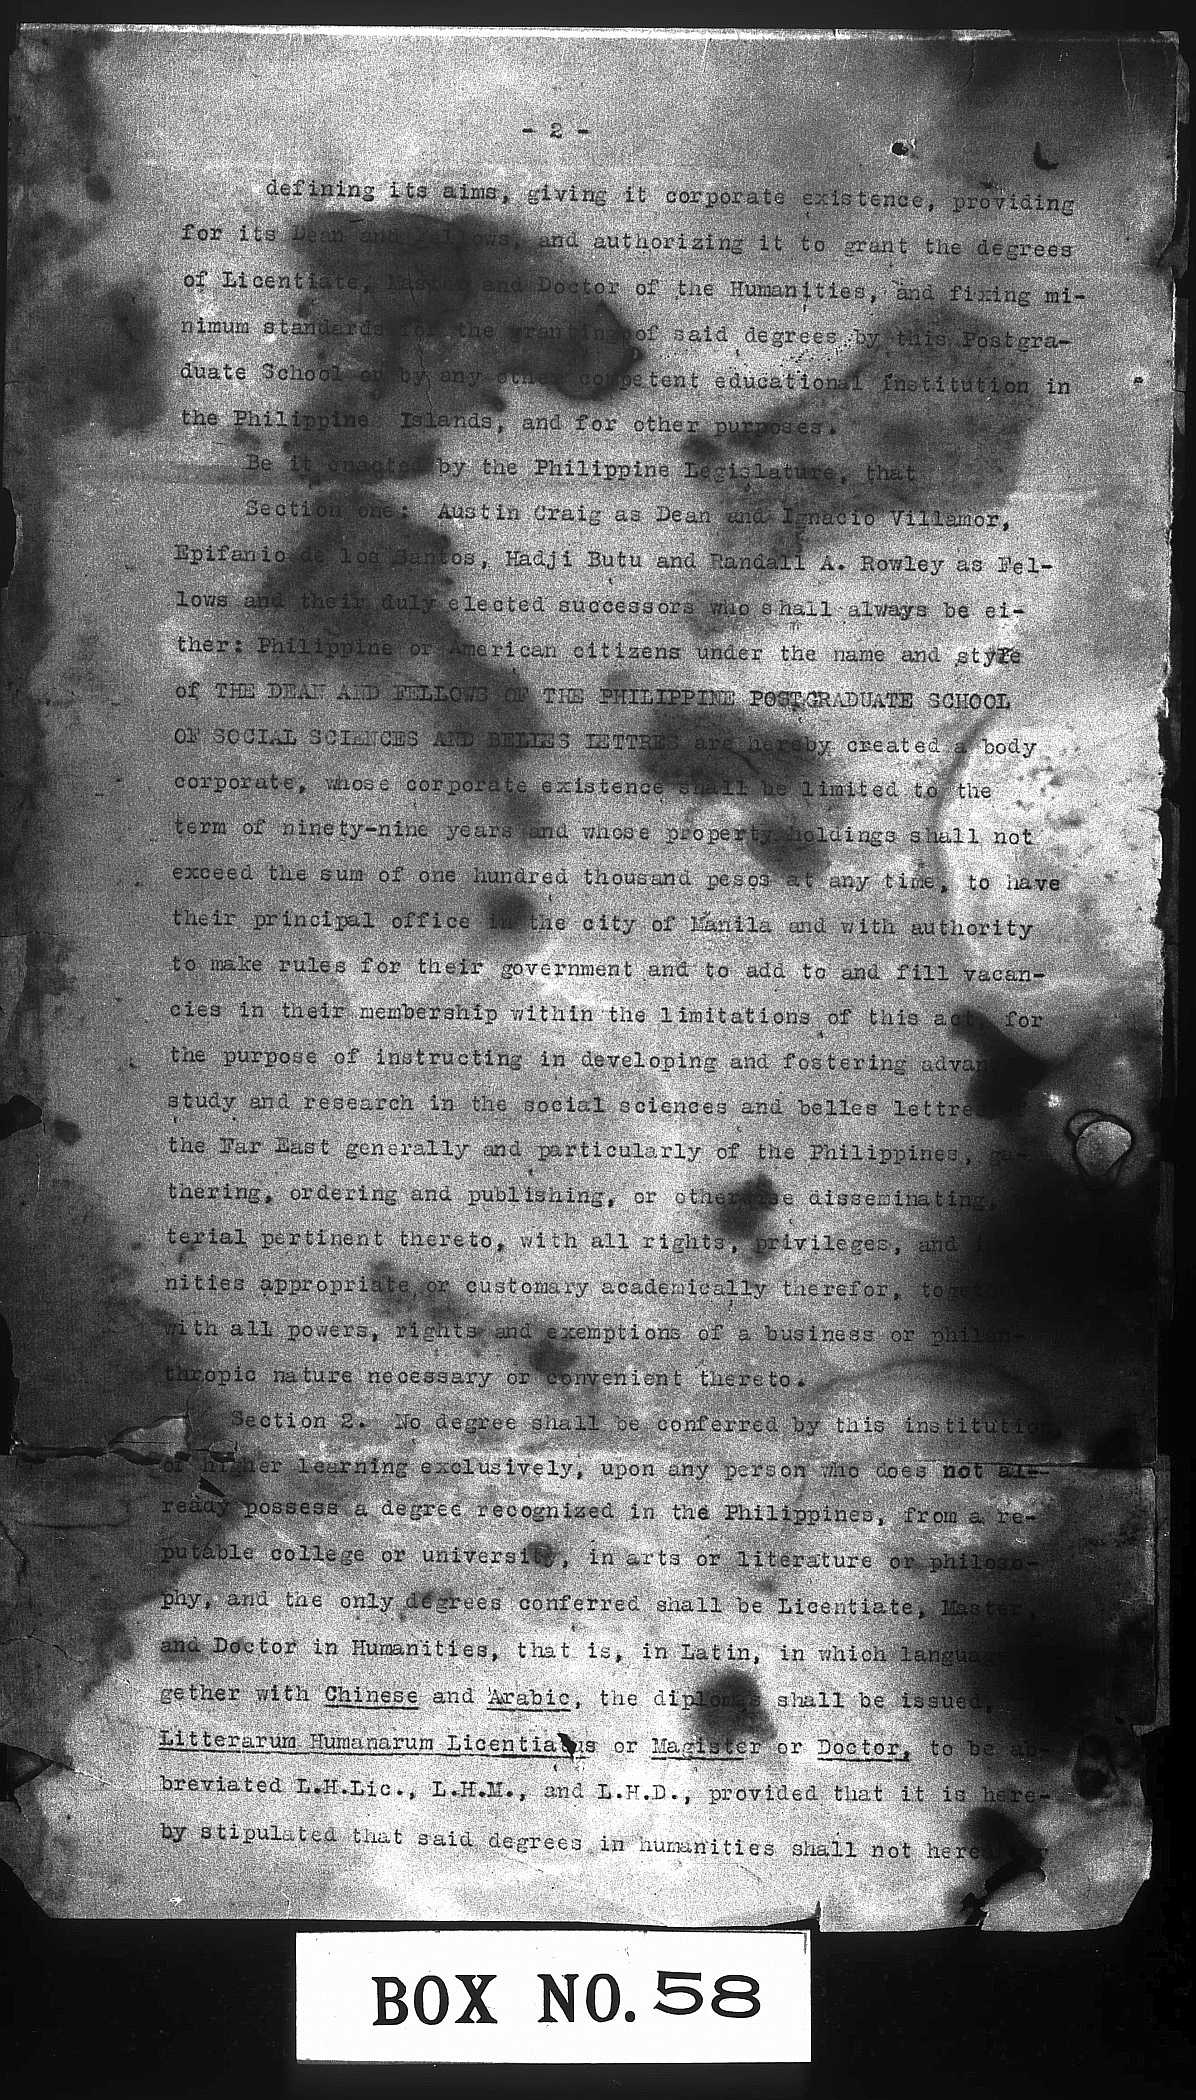 - 2 -
defining its aims, giving it corporate existence, providing
for its Dean and Fellows, and authorizing it to grant the degrees
of Licentiate, Master and Doctor of the Humanities, and fixing mi-
nimum standards for the granting of said degrees by this Postgra-
duate School or by any other competent educational institution in
the Philippine Islands, and for other purposes.
Be it enacted by the Philippine Legislature, that
Section one: Austin Craig as Dean and Ignacio Villamor,
Epifanio de los Santos, Hadji Butu and Randall A. Rowley as Fel-
lows and their duly elected successors who shall always be ei-
ther: Philippine or American citizens under the name and style
of THE DEAN AND FELLOWS OF THE PHILIPPINE POSTGRADUATE SCHOOL
OF SOCIAL SCIENCES AND BELLES LETTRES are hereby created a body
corporate, whose corporate existence shall be limited to the
term of ninety-nine years and whose property holdings shall not
exceed the sum of one hundred thousand pesos at any time, to have
their principal office in the city of Manila and with authority
to make rules for their government and to add to and fill vacan-
cies in their membership within the limitations of this act, for
the purpose of instructing in developing and fostering
study and research in the social sciences and belles lettres
the Far East generally and particularly of the Philippines, ga-
thering, ordering and publishing, or otherwise disseminating,
terial pertinent thereto, with all rights, privileges, and
nities appropriate or customary academically therefor,
with all powers, rights and exemptions of a business or philan-
thropic nature necessary or convenient thereto.
Section 2. No degree shall be conferred by this institution
of higher learning exclusively, upon any person who does not al-
ready possess a degree recognized in the Philippines, from a re-
putable college or university, in arts or literature or philoso-
phy, and the only degrees conferred shall be Licentiate, Master,
and Doctor in Humanities, that is, in Latin, in which
gether with Chinese and Arabic, the diplomas shall be issued,
Litterarum Humanarum Licentiatus or Magister or Doctor, to be ab-
breviated L.H.Lic., L.H.M., and L.H.D., provided that it is here-
by stipulated that said degrees in humanities shall not
BOX NO. 58